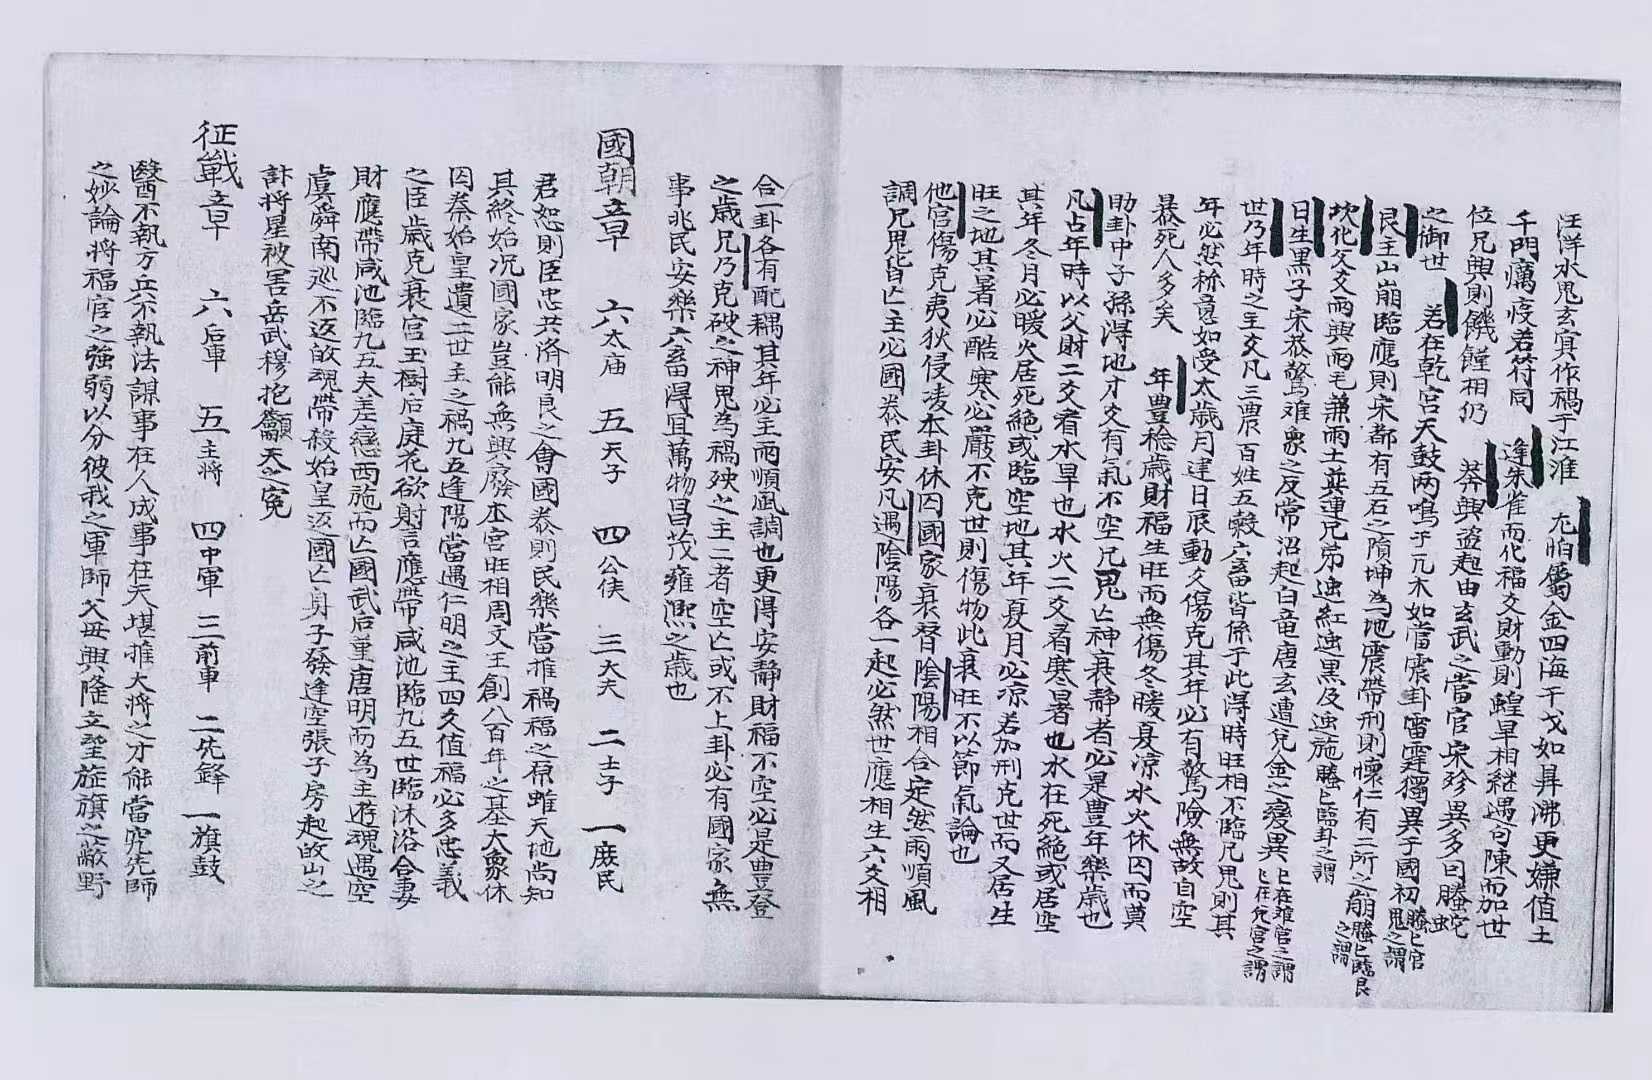 汪洋水鬼玄冥作禍于江淮　尤怕屬金四海干戈如鼎沸更嫌值土
千門癘疫若符同　逢朱雀而化福爻財動則蝗旱相継遇勾陳而加世
位兄興則饑饉相仍　莽興盗起由玄武之當官宋珍異多因螣蛇
之御世　若在乾宮天鼓两鳴于元末如當震卦雷霆獨異于國初螣匕官鬼之謂
艮主山崩臨應則宋都有五石之隕坤為地震帶刑則懷仁有二所之崩螣匕臨艮之謂
坎化父爻而興雨毛兼雨土巽連兄弟虫紅虫黒及虫施螣匕臨卦之謂
日生黒子宋恭驚难象之反常沼起白竜唐玄遭兊金之變異匕在难宮之謂匕在兊宮之謂
世乃年時之主爻凡三農百姓五榖六畜皆係于此得時旺相不臨兄鬼則其
年必然称意如受太歲月建日辰動爻傷克其年必有驚險無故自空
暴死人多矣　年豊稔歲財福生旺而無傷冬暖夏凉水火休囚而莫
助卦中子孫得地才爻有氣不空兄鬼亡神衰靜者必是豊年樂歲也
凡占年時以父財二爻看水旱也水火二爻看寒暑也水在死絕或居空
其年冬月必暖火居死絕或臨空地其年夏月必凉若加刑克世而又居生
旺之地其暑必酷寒必嚴不克世則傷物此衰旺不以節氣論也
他宮傷克夷狄侵凌本卦休囚國家衰替陰陽相合定然雨順風
調兄鬼皆亡主必國泰民安凡遇陰陽各一起必然世應相生六爻相
合一卦各有配耦其年必主雨順風調也更得安靜財福不空必是豊登
之歲兄乃克破之神鬼為禍殃之主二者空亡或不上卦必有國家無
事兆民安樂六畜得宜萬物昌茂雍熙之歲也
國朝章　六太庙　五天子　四公侯　三大夫　二士子　一庶民
君恕則臣忠共済明良之會國泰則民樂當推禍福之原雖天地尚知
其終始况國家豈能無興廢本宮旺相周文王創八百年之基大象休
囚秦始皇遺二世主之禍九五逢陽當遇仁明之主四爻值福必多忠義
之臣歲克衰宮玉樹后庭花欲射言應帶咸池臨九五世臨沐浴合妻
財應帶咸池臨九五夫差戀西施而亡國武后革唐明而為主遊魂遇空
虞舜南巡不返故魂帶殺始皇返國亡身子發逢空張子房起故山之
訃將星被害岳武穆抱籲天之冤
征戰章　六后軍　五主将　四中軍　三前軍　二先鋒　一旗鼓
醫不執方兵不執法謀事在人成事在天堪推大將之才能當究先師
之妙論將福官之強弱以分彼我之軍師父母興隆立望旌旗之蔽野